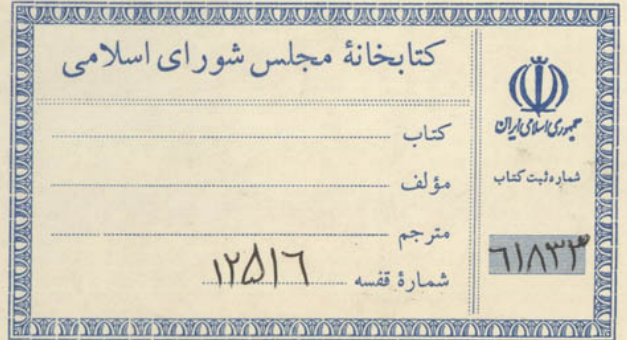 کتابخانهٔ مجلس شورای اسلامی
کتاب
مؤلف
مترجم
شمارهٔ قفسه ۱۲۵۱۶
جمهوری اسلامی ایران
شماره ثبت کتاب
۶۱۸۳۳